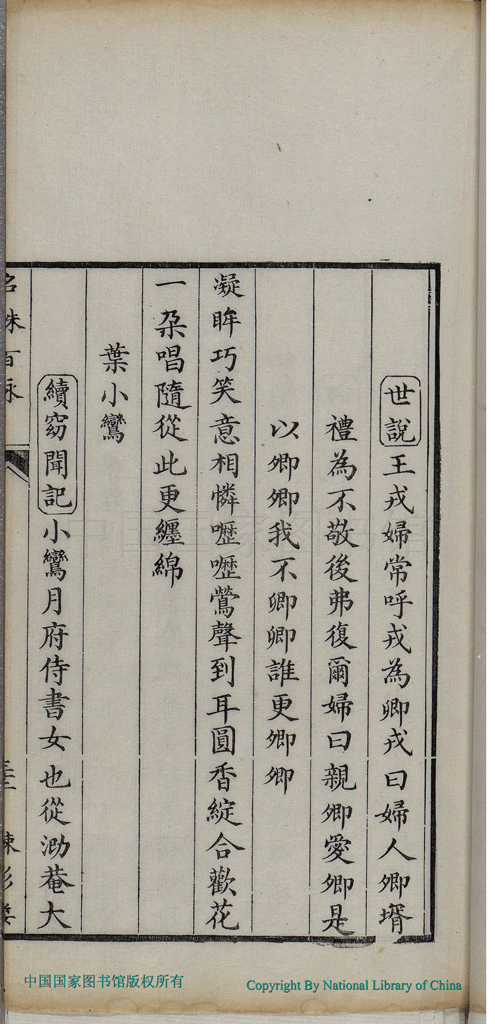 世說王戎婦常呼戎為卿戎曰婦人卿壻
禮為不敬後弗復爾婦曰親卿愛卿是
以卿卿我不卿卿誰更卿卿
凝眸巧笑意相憐嚦嚦鶯聲到耳圓香綻合歡花
一朶唱隨從此更纏綿
葉小鸞
續窈聞記小鸞月府侍書女也從泐菴大
名姝百詠
中国国家图书馆版权所有
Copyright By National Library of China